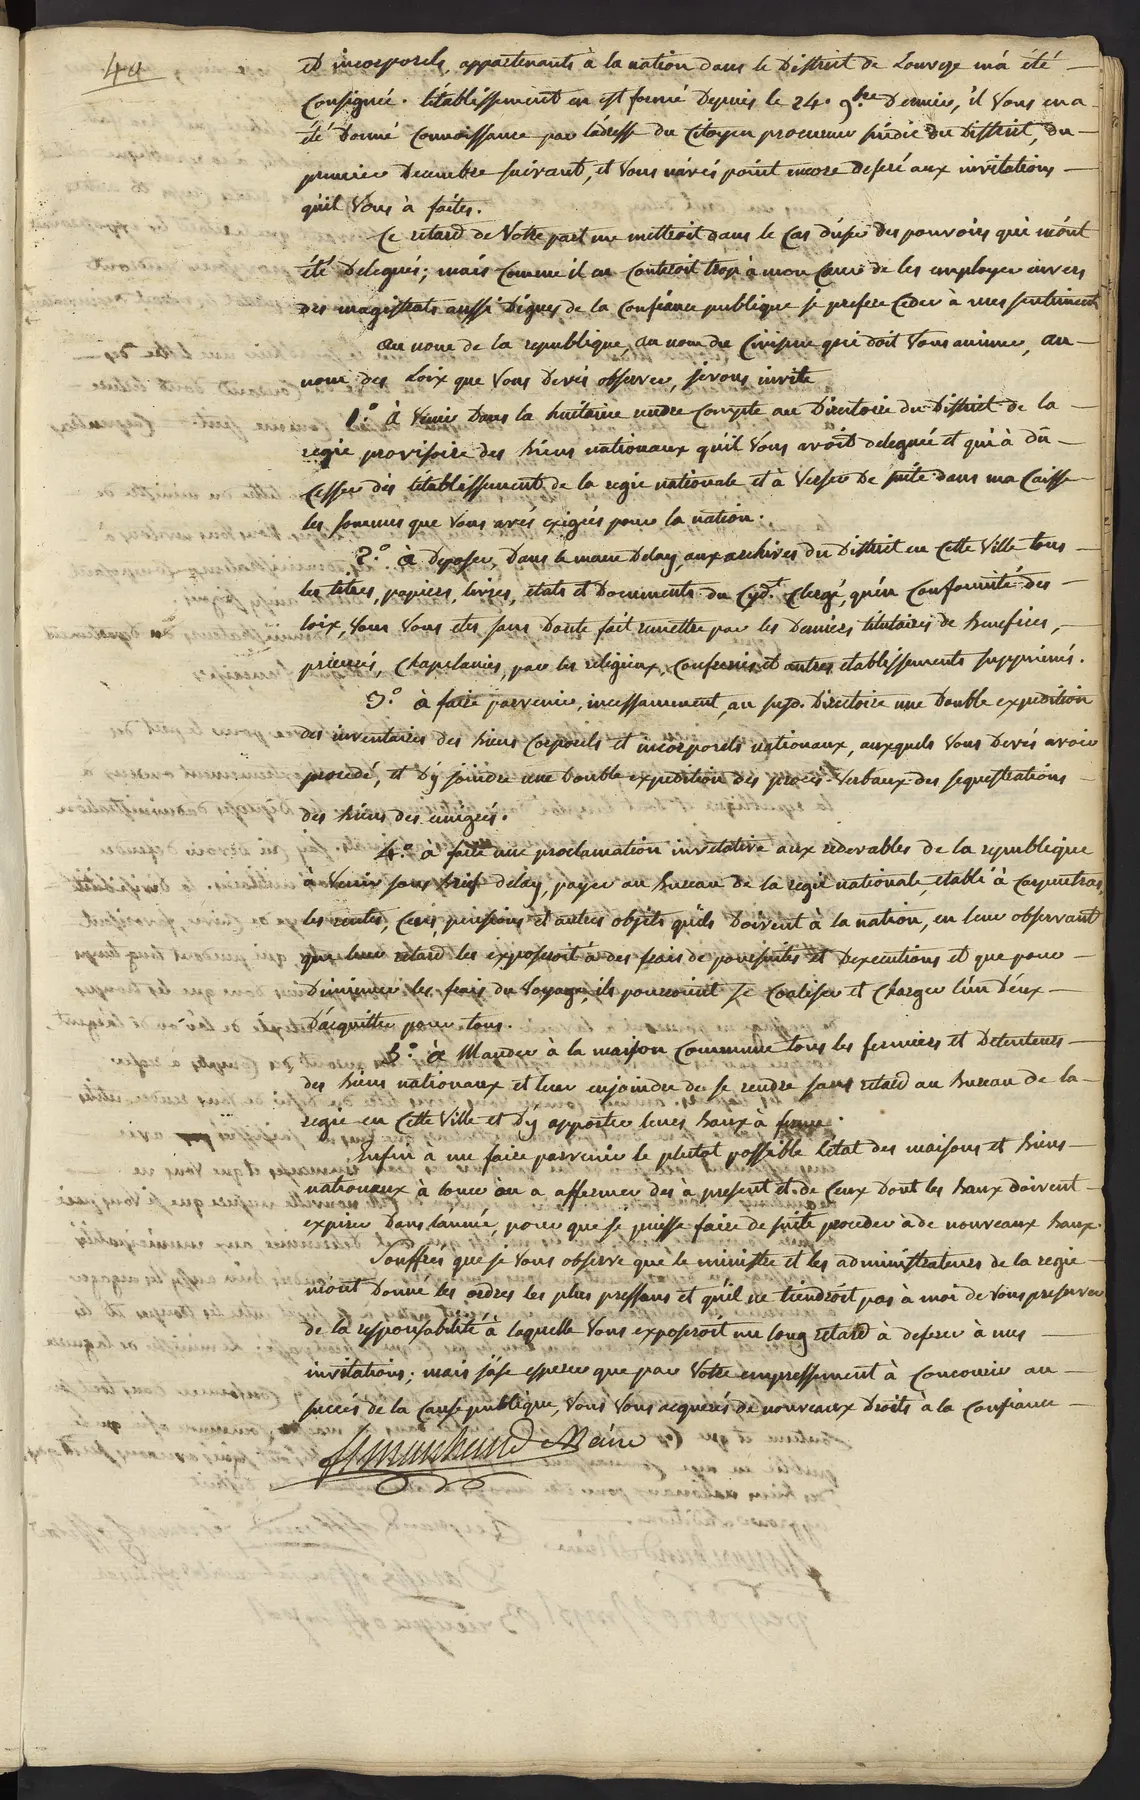 et incorporels, appartenants à la nation dans le District de Louveze m'a été
Consignée. l'établissement en est formé Depuis le 24. 9bre Dernier, il Vous en a
été Donné Connoissance par l'adresse du Citoyen procureur sindic du District, du
premier Decembre suivant, et Vous n'avés point encore deferé aux invitations
qu'il Vous à faites.
Ce retard de Votre part me mettroit dans le Cas d'user des pouvoirs qui m'ont
été Delegués; mais Comme il en Couteroit trop à mon Cœur de les employer envers
des magistrats aussi Dignes de la Confiance publique je prefere Ceder à mes sentiments
au nom de la republique, au nom du Civisme qui doit Vous animer, au
nom des Loix que Vous Devés observer, je vous invite
1.° à Venir Dans la huitaine rendre Compte au Directoire du District de la
regie provisoire des biens nationaux qu'il Vous avoit deleguée et qui à dû
Cesser dès l'établissement de la regie nationale et à Verser De suite dans ma Caisse
les sommes que Vous avés exigées pour la nation.
2.° à Deposer, Dans le meme Delay, aux archives du District en Cette Ville tous
les titres, papiers, livres, etats et Documents du Cydt. Clergé, qu'en Conformité des
loix, Vous Vous etes sans Doute fait remettre par les Derniers titulaires de benefices,
prieurés, Chapelanies, par les religieux, Confreries et autres etablissements supprimés.
3.° à faire parvenir, incessamment, au susd. Directoire une Double expedition
des inventaires des biens Corporels et incorporels nationaux, auxquels Vous Devés avoir
procedé, et D'y joindre une Double expedition des procès-Verbaux des sequestrations
des biens des emigrés.
4.° à faire une proclamation invitative aux redevables de la republique
à Venir sans bref delay, payer au bureau de la regie nationale etabli à Carpentras,
les rentes, Cens, pensions et autres objets qu'ils Doivent à la nation, en leur observant
que leur retard les exposeroit à des frais de poursuites et D'executions et que pour
Diminuer les frais du Voyage, ils pourroient se Coaliser et Charger l'un D'eux
D'acquitter pour tous.
5.° à Mander à la maison Commune tous les fermiers et Detenteurs
des biens nationaux et leur enjoindre de se rendre sans retard au bureau de la
regie en Cette Ville et D'y apporter leurs baux à ferme.
Enfin à me faire parvenir le plutot possible l'état des maisons et biens
nationaux à louer ou a affermer des à present et de Ceux Dont les baux doivent
expirer Dans l'année, pour que je puisse faire de suite proceder à de nouveaux baux.
Souffrés que je Vous observe que le ministre et les administrateurs de la regie
m'ont Donné les ordres les plus pressans et qu'il ne tiendroit pas à moi de Vous preserver
de la responsabilité à laquelle Vous exposeroit un long retard à deferer à mes
invitations; mais j'ose esperer que par Votre empressement à Concourir au
succès de la Cause publique, Vous Vous acquerés de nouveaux Droits à la Confiance
Maire